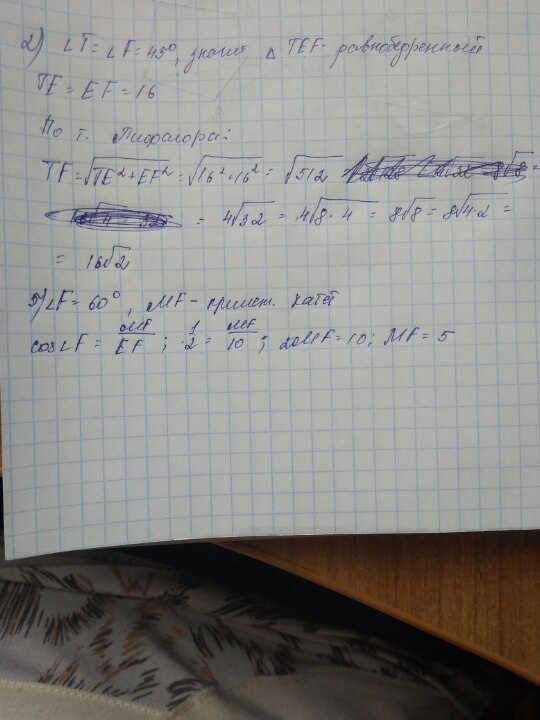 2) ∠T = ∠F = 45°, значит △ TEF - равнобедренный
TE = EF = 16
По т. Пифагора:
TF = √TE² + EF² = √16² + 16² = √512 =
= 4√32 = 4√8 · 4 = 8√8 = 8√4·2 =
= 16√2
5) ∠F = 60°, MF - прилеж. катет
cos∠F = MF/EF ; 1/2 = MF/10 ; 2MF = 10; MF = 5